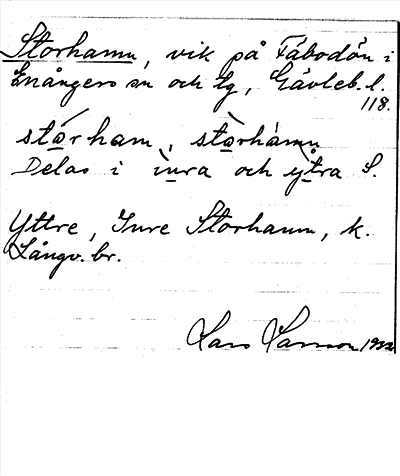 Storhamn, vik på Fäbodön i
Enångers sn och tg, Gävleb. l.
118.
stårham, stårhamn
Delas i inra och ytra S.
Yttre, Inre Storhamn, k.
Långv. br.
Lars Larsson 1932